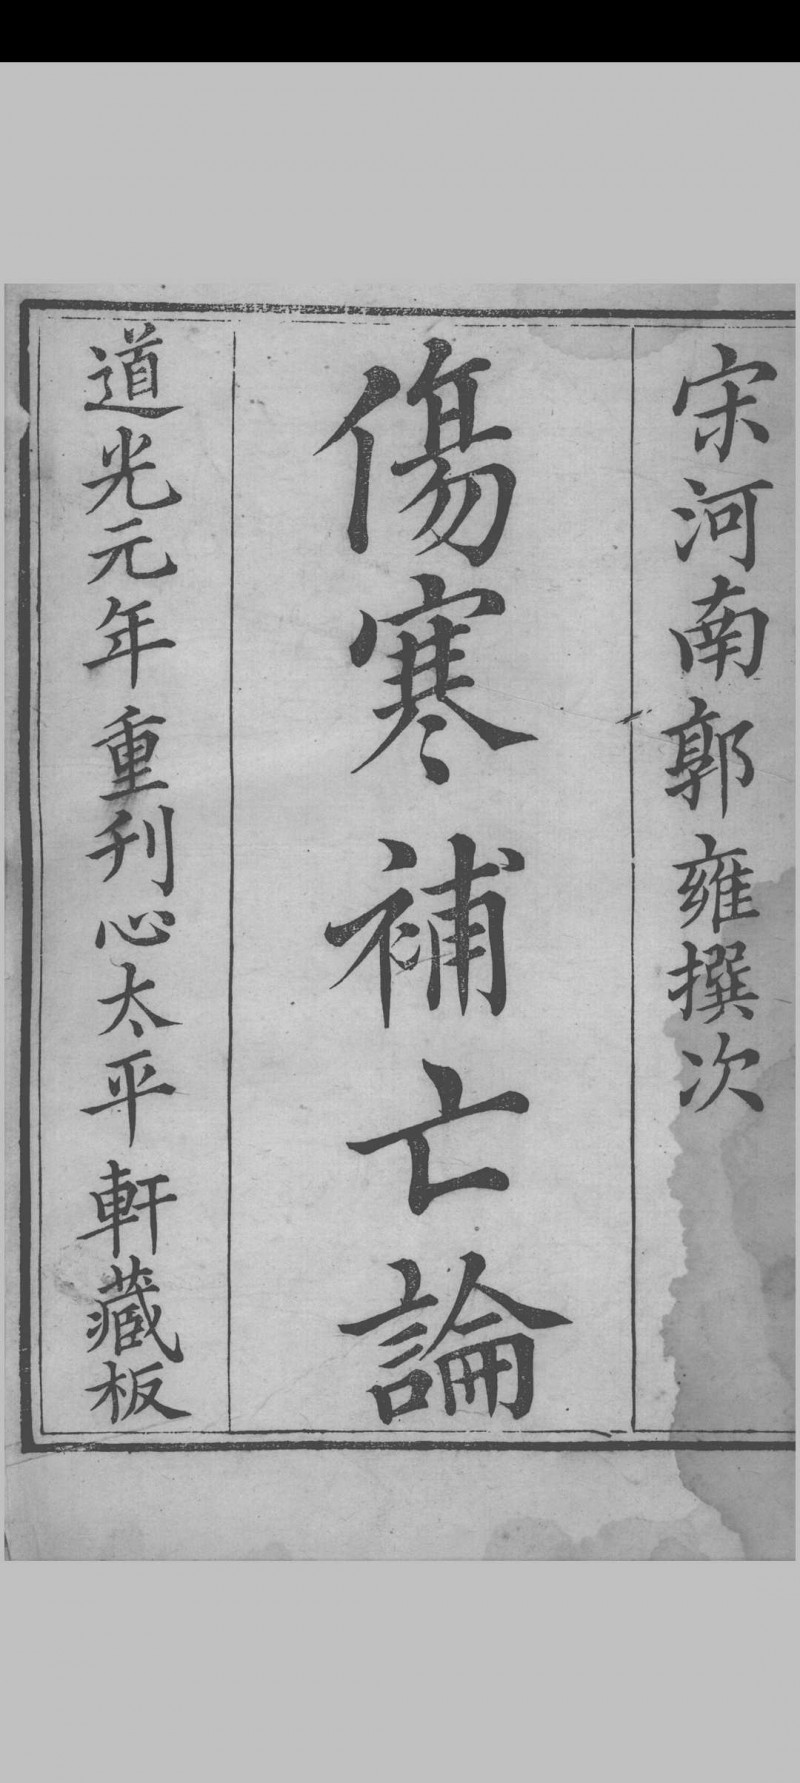 宋河南郭雍撰次
傷寒補亡論
道光元年重刊心太平軒藏板